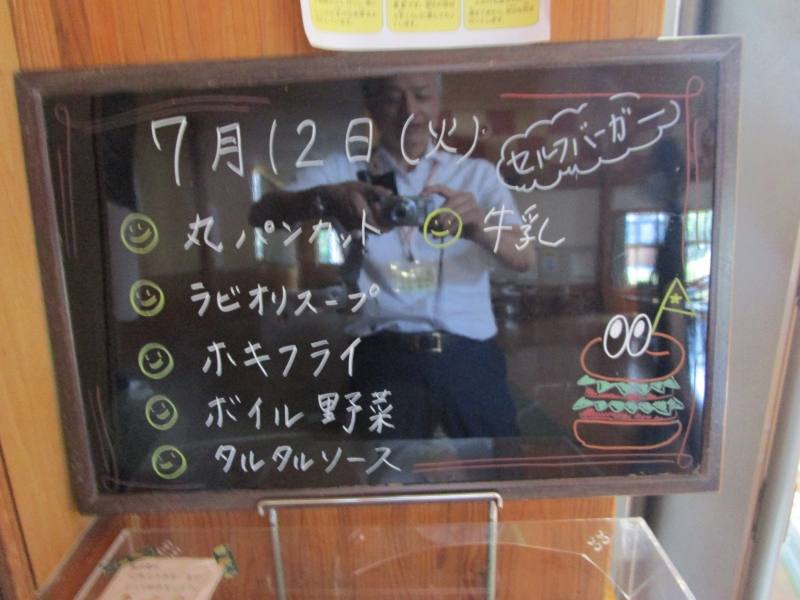 7月12日(火)
セルフバーガー
丸パンカット
牛乳
ラビオリスープ
ホキフライ
ボイル野菜
タルタルソース